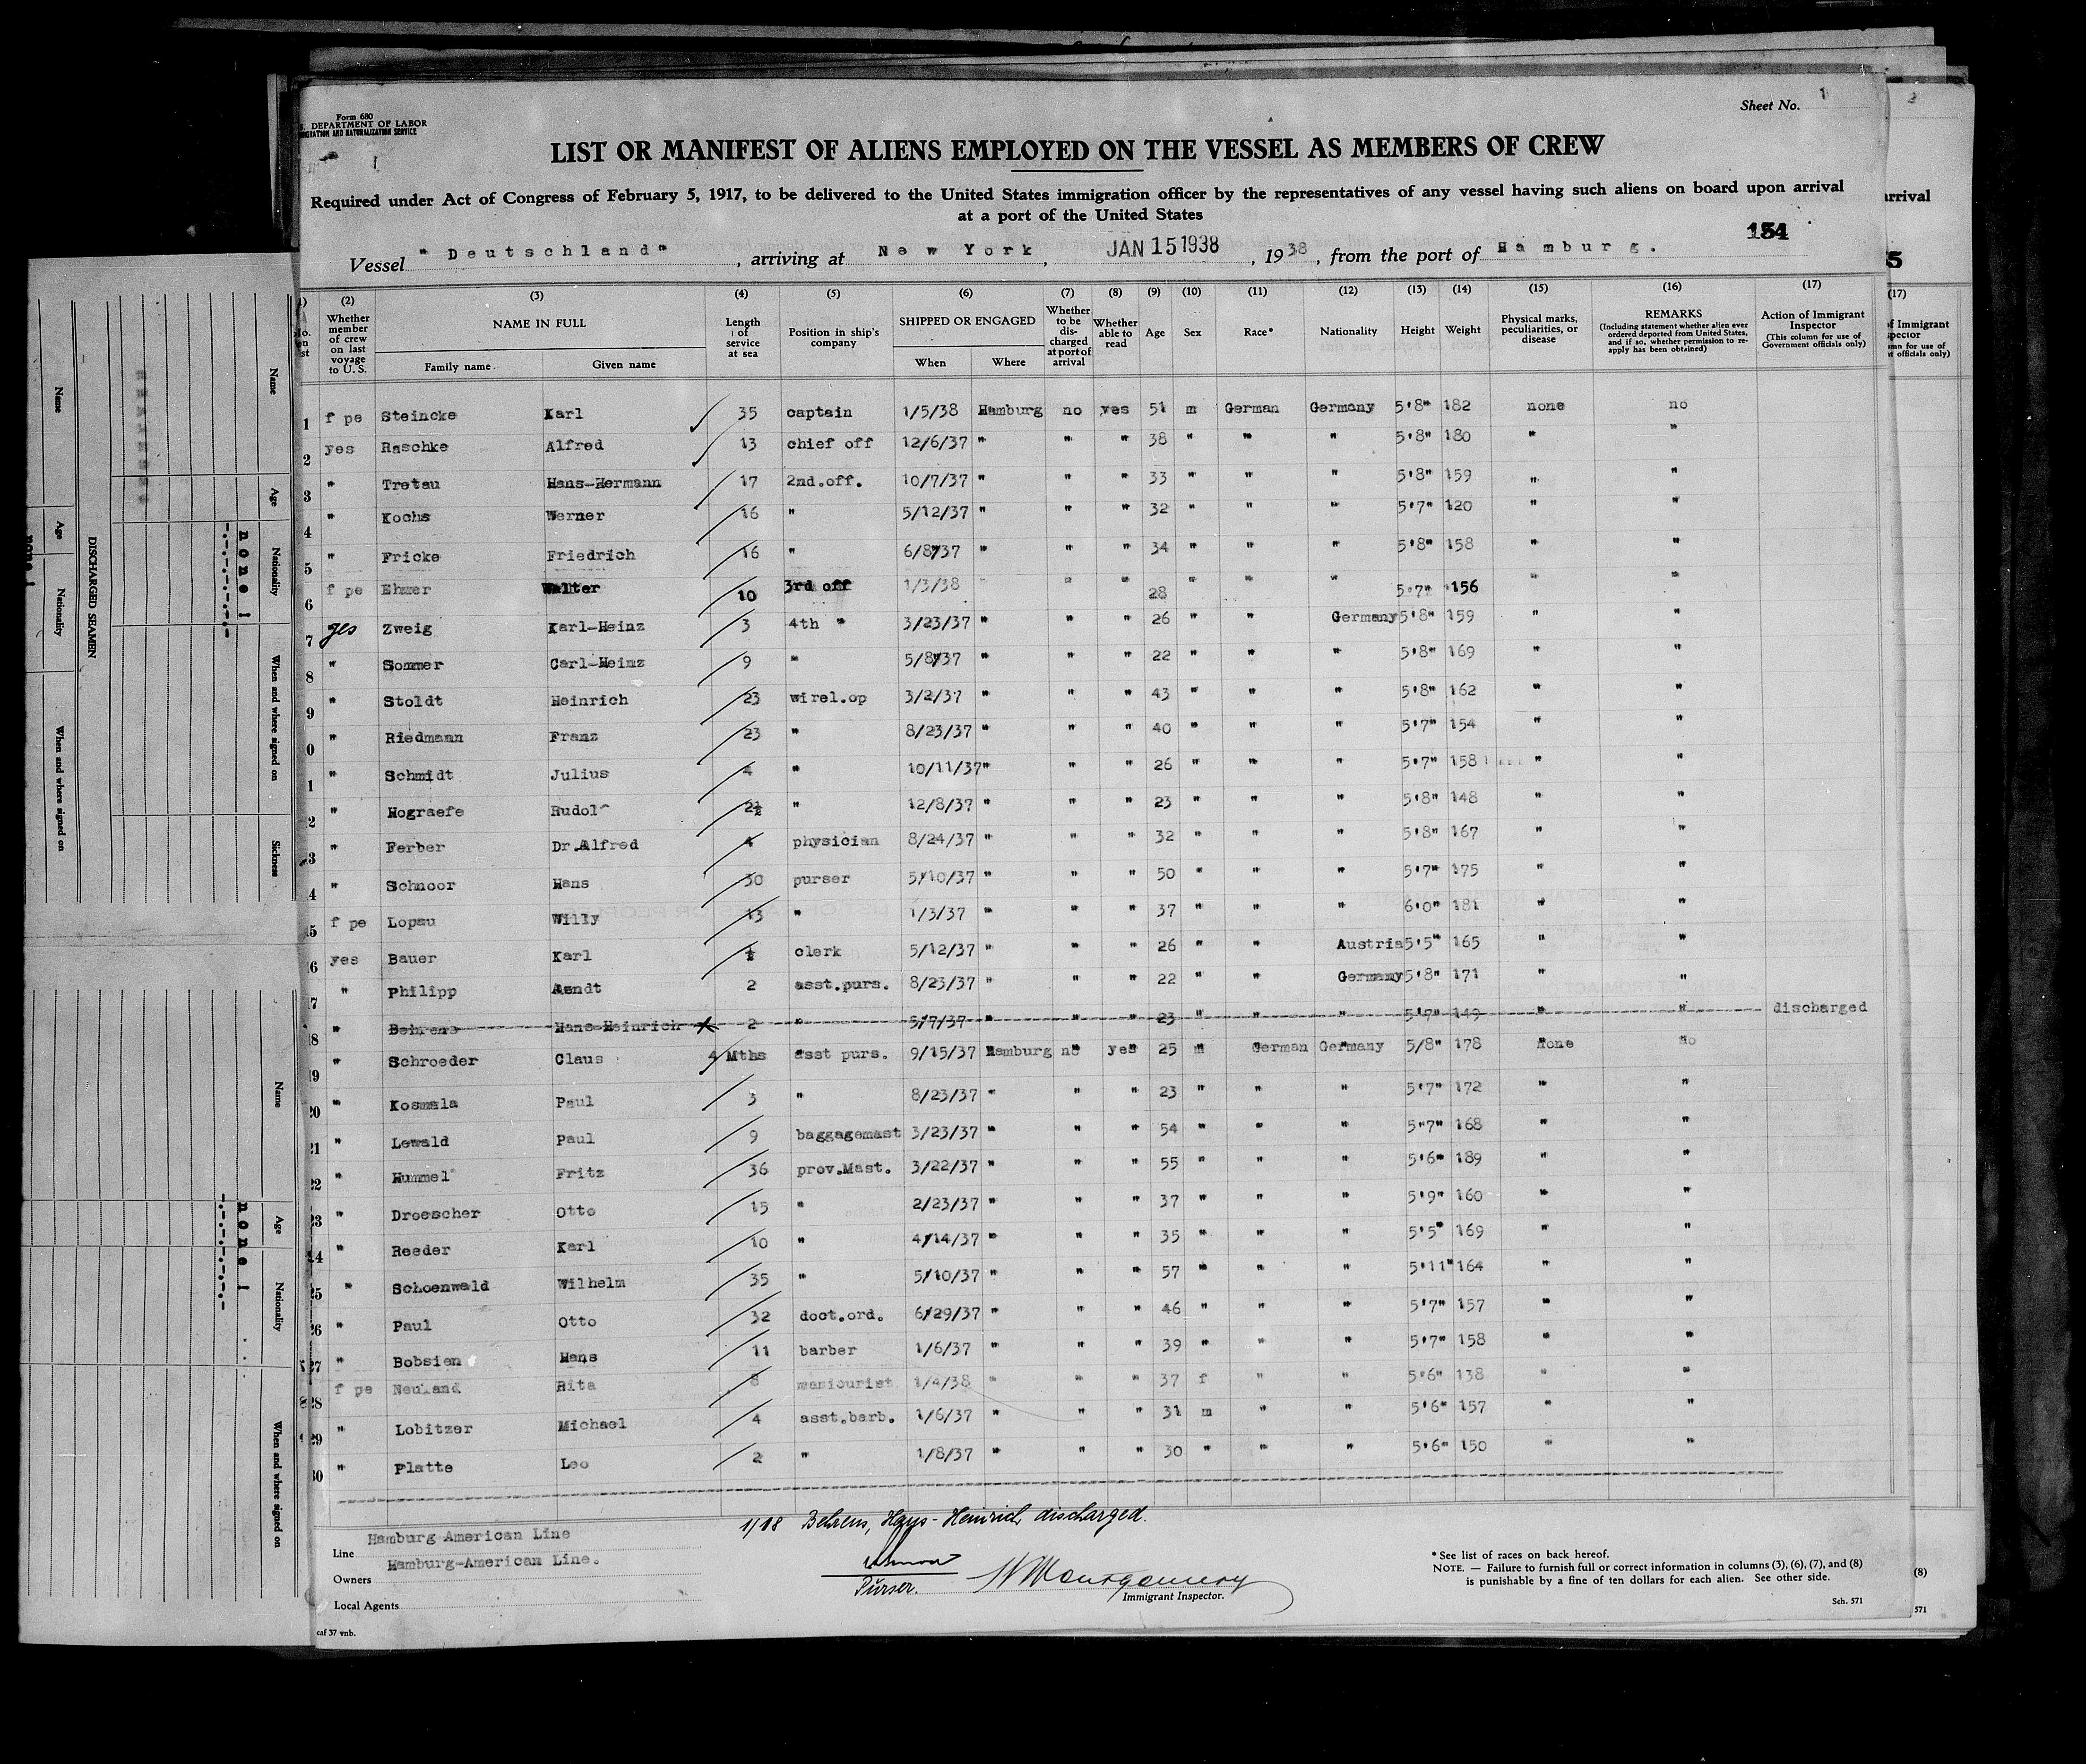 Sheet No. 1
Form 680
S. DEPARTMENT OF LABOR
IMMIGRATION AND NATURALIZATION SERVICE
LIST OR MANIFEST OF ALIENS EMPLOYED ON THE VESSEL AS MEMBERS OF CREW
Required under Act of Congress of February 5, 1917, to be delivered to the United States immigration officer by the representatives of any vessel having such aliens on board upon arrival
at a port of the United States
154
Vessel "Deutschland", arriving at New York, JAN 15 1938, 1938, from the port of Hamburg.
(2) (3) (4) (5) (6) (7) (8) (9) (10) (11) (12) (13) (14) (15) (16) (17)
Whether member of crew on last voyage to U. S. NAME IN FULL Family name Given name Length of service at sea Position in ship's company SHIPPED OR ENGAGED When Where Whether to be discharged at port of arrival Whether able to read Age Sex Race* Nationality Height Weight Physical marks, peculiarities, or disease REMARKS (Including statement whether alien ever ordered deported from United States, and if so, whether permission to reapply has been obtained) Action of Immigrant Inspector (This column for use of Government officials only)
1 f pe Steincke Karl 35 captain 1/5/38 Hamburg no yes 51 m German Germany 5'8" 182 none no
2 yes Raschke Alfred 13 chief off 12/6/37 " " " 38 " " " 5'8" 180 " "
3 " Tretau Hans-Hermann 17 2nd.off. 10/7/37 " " " 33 " " " 5'8" 159 " "
4 " Kochs Werner 16 " 5/12/37 " " " 32 " " " 5'7" 120 " "
5 " Fricke Friedrich 16 " 6/8/37 " " " 34 " " " 5'8" 158 " "
6 f pe Ehmer Walter 10 3rd off 1/3/38 " " " 28 " " " 5'7" 156 " "
7 yes Zweig Karl-Heinz 3 4th " 3/23/37 " " " 26 " " Germany 5'8" 159 " "
8 " Sommer Carl-Heinz 9 " 5/8/37 " " " 22 " " " 5'8" 169 " "
9 " Stoldt Heinrich 23 wirel.op 3/2/37 " " " 43 " " " 5'8" 162 " "
0 " Riedmann Franz 23 " 8/23/37 " " " 40 " " " 5'7" 154 " "
1 " Schmidt Julius 4 " 10/11/37 " " " 26 " " " 5'7" 158 " "
2 " Hograefe Rudolf 2½ " 12/8/37 " " " 23 " " " 5'8" 148 " "
3 " Ferber Dr.Alfred 4 physician 8/24/37 " " " 32 " " " 5'8" 167 " "
4 " Schnoor Hans 30 purser 5/10/37 " " " 50 " " " 5'7" 175 " "
5 f pe Lopau Willy 13 " 1/3/37 " " " 37 " " " 6'0" 181 " "
16 yes Bauer Karl clerk 5/12/37 " " " 26 " " Austria 5'5" 165 " "
17 " Philipp Aendt 2 asst.purs. 8/23/37 " " " 22 " " Germany 5'8" 171 " "
18 " Behrens Hans-Heinrich 2 " 5/7/37 " " " 23 " " " 5'7" 149 " " discharged
19 " Schroeder Claus 4 Mths asst purs. 9/15/37 Hamburg no yes 25 m German Germany 5/8" 178 none no
20 " Kosmala Paul 3 " 8/23/37 " " " 23 " " " 5'7" 172 " "
21 " Lewald Paul 9 baggagemast 3/23/37 " " " 54 " " " 5"7" 168 " "
22 " Hummel Fritz 36 prov.Mast. 3/22/37 " " " 55 " " " 5'6" 189 " "
23 " Droescher Otto 15 " 2/23/37 " " " 37 " " " 5'9" 160 " "
24 " Reeder Karl 10 " 4/14/37 " " " 35 " " " 5'5" 169 " "
25 " Schoenwald Wilhelm 35 " 5/10/37 " " " 57 " " " 5'11" 164 " "
26 " Paul Otto 32 doct.ord. 6/29/37 " " " 46 " " " 5'7" 157 " "
27 " Bobsien Hans 11 barber 1/6/37 " " " 39 " " " 5'7" 158 " "
28 f pe Neuland Rita 8 manicurist 1/4/38 " " " 37 f " " 5"6" 138 " "
29 " Lobitzer Michael 4 asst.barb. 1/6/37 " " " 31 m " " 5'6" 157 " "
30 " Platte Leo 2 " 1/8/37 " " " 30 " " " 5'6" 150 " "
1/18 Behrens, Hans-Heinrich discharged.
Line Hamburg American Line
Owners Hamburg-American Line.
Local Agents
Purser.
Montgomery
Immigrant Inspector.
* See list of races on back hereof.
NOTE. — Failure to furnish full or correct information in columns (3), (6), (7), and (8)
is punishable by a fine of ten dollars for each alien. See other side.
Sch. 571
caf 37 vnb.
DISCHARGED SEAMEN
Name Age Nationality When and where signed on
Name Age Nationality When and where signed on Sickness
none!
Name Age Nationality When and where signed on
none!
2
arrival
5
(17)
of Immigrant
(8)
571